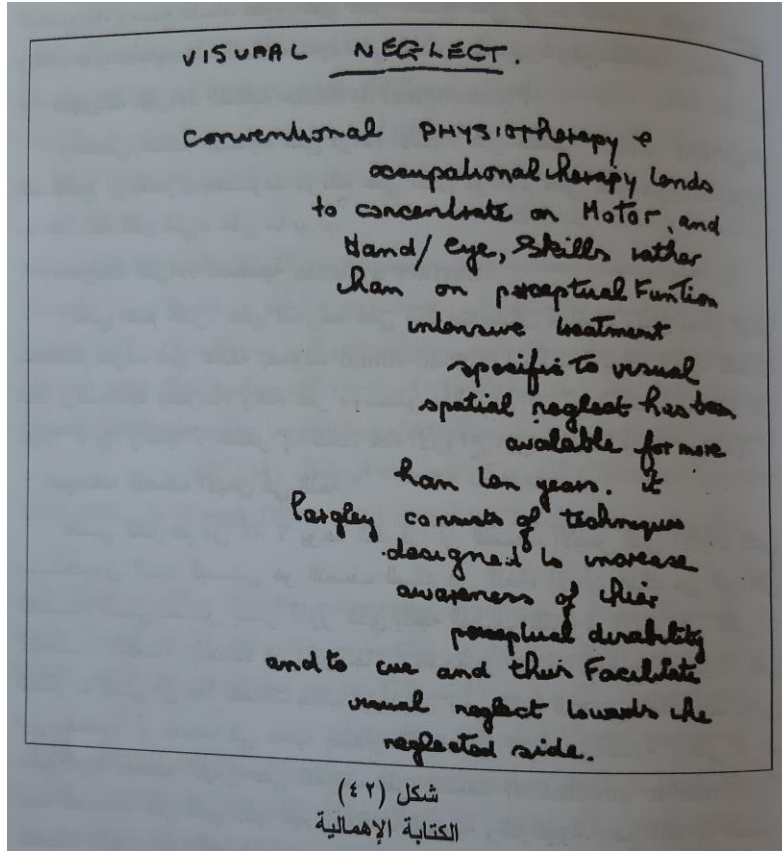 VISUAL NEGLECT.
conventional PHYSIOtherapy e
occupational therapy tends
to concentrate on Motor, and
Hand/ eye, Skills rather
than on perceptual Funtion
intensive treatment
specific to visual
spatial neglect has been
available for more
than ten years. it
largley consists of techniques
designed to increase
awareness of their
perceptual disability
and to cue and their Facilitate
visual neglect towards the
neglected side.
شكل (٤٢)
الكتابة الإهمالية